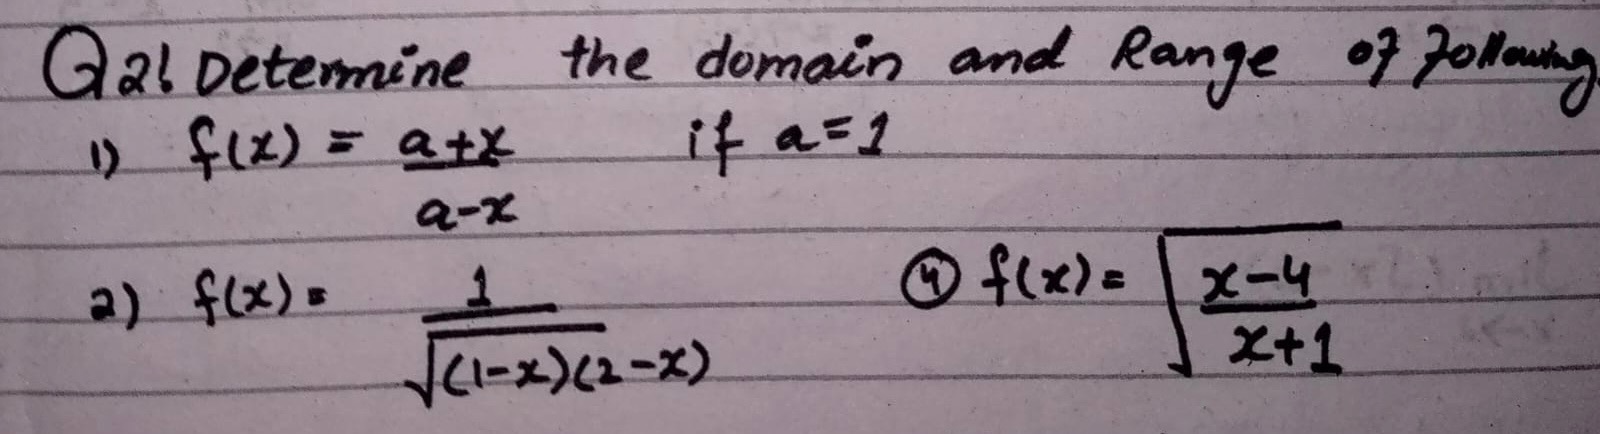 Q2! Determine the domain and Range of following.
1) f(x) = a+x / a-x if a=1
2) f(x) = 1 / √(1-x)(2-x)
④ f(x) = √ x-4 / x+1